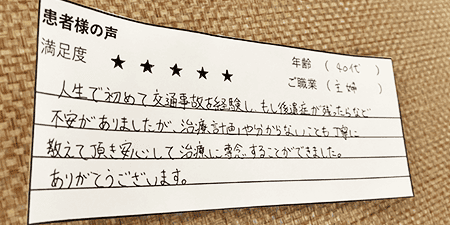 患者様の声
満足度 ★★★★★ 年齢 ( 40代 )
ご職業 ( 主婦 )
人生で初めて交通事故を経験し、もし後遺症が残ったらなど
不安がありましたが、治療計画や分からないことも丁寧に
教えて頂き安心して治療に専念することができました。
ありがとうございます。